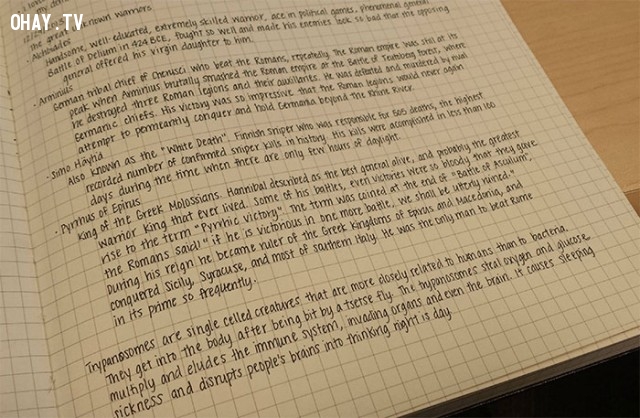 OHAY.TV
known warriors
the great
Alcibiades
Handsome, well-educated, extremely skilled warrior, ace in political games, phenomenal general
Battle of Delium in 424 BCE, fought so well and made his enemies look so bad that the opposing
general offered his virgin daughter to him.
· Arminius
German tribal chief of Cherusci who beat the Romans, repeatedly. The Roman empire was still at its
peak when Arminius brutally smashed the Roman empire at the Battle of Teutoberg forest, where
he destroyed three Roman legions and their auxiliaries. He was defeated and murdered by rival
Germanic chiefs. His victory was so impressive that the Roman legions would never again
attempt to permanently conquer and hold Germania beyond the Rhine River.
· Simo Häyhä
Also known as the "White Death". Finnish sniper who was responsible for 505 deaths, the highest
recorded number of confirmed sniper kills in history. His kills were accomplished in less than 100
days during the time when there are only few hours of daylight.
· Pyrrhus of Epirus
King of the Greek Molossians. Hannibal described as the best general alive, and probably the greatest
warrior king that ever lived. Some of his battles, even victories were so bloody that they gave
rise to the term "Pyrrhic victory". The term was coined at the end of "Battle of Asculum",
the Romans said! "if he is victorious in one more battle, we shall be utterly ruined."
During his reign he became ruler of the Greek Kingdoms of Epirus and Macedonia, and
conquered Sicily, Syracuse, and most of southern Italy. He was the only man to beat Rome
in its prime so frequently.
Trypanosomes are single celled creatures that are more closely related to humans than to bacteria.
They get into the body after being bit by a tsetse fly. The trypanosomes steal oxygen and glucose
multiply and eludes the immune system, invading organs and even the brain. It causes sleeping
sickness and disrupts people's brains into thinking night is day.